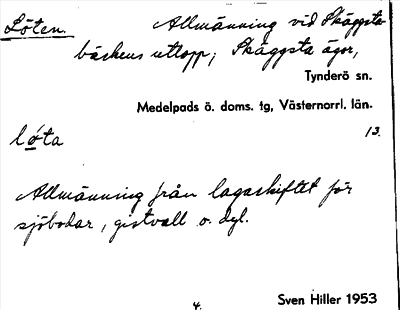 Löten. Allmänning vid Skäggsta-
bäckens utlopp; Skäggsta ägor,
Tynderö sn.
Medelpads ö. doms. tg, Västernorrl. län.
lóta 13.
Allmänning från lagaskiftet för
sjöbodar, gistvall o. dyl.
4. Sven Hiller 1953